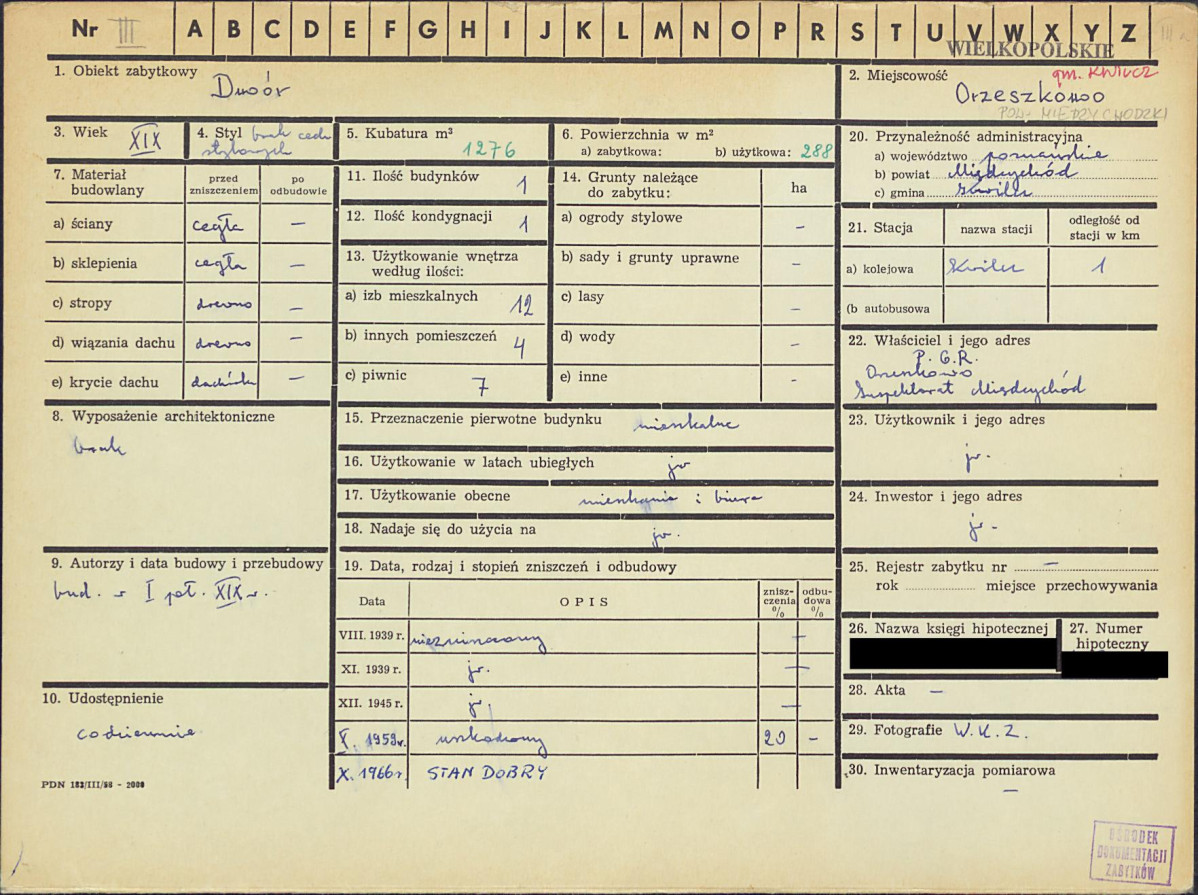 Nr III A B C D E F G H I J K L M N O P R S T U V W X Y Z III
WIELKOPOLSKIE
1. Obiekt zabytkowy
Dwór
2. Miejscowość
gm. KWILCZ
Orzeszkowo
POW. MIĘDZYCHODZKI
3. Wiek XIX
4. Styl brak cech
stylowych
5. Kubatura m³
1276
6. Powierzchnia w m²
a) zabytkowa: b) użytkowa: 288
7. Materiał budowlany
przed zniszczeniem
po odbudowie
a) ściany cegła —
b) sklepienia cegła —
c) stropy drewno —
d) wiązania dachu drewno —
e) krycie dachu dachówka —
8. Wyposażenie architektoniczne
brak
9. Autorzy i data budowy i przebudowy
bud. w I poł. XIX w.
10. Udostępnienie
codziennie
PDN 182/III/58 - 2000
11. Ilość budynków 1
12. Ilość kondygnacji 1
13. Użytkowanie wnętrza
według ilości:
a) izb mieszkalnych 12
b) innych pomieszczeń 4
c) piwnic 7
14. Grunty należące
do zabytku: ha
a) ogrody stylowe –
b) sady i grunty uprawne –
c) lasy –
d) wody –
e) inne –
15. Przeznaczenie pierwotne budynku mieszkalne
16. Użytkowanie w latach ubiegłych jw
17. Użytkowanie obecne mieszkania i biura
18. Nadaje się do użycia na jw.
19. Data, rodzaj i stopień zniszczeń i odbudowy
Data OPIS znisz-czenia % odbu-dowa %
VIII. 1939 r. niezniszczony —
XI. 1939 r. jw. —
XII. 1945 r. jw. —
X. 1959 r. uszkodzony 20 –
X. 1966 r. STAN DOBRY
20. Przynależność administracyjna
a) województwo poznańskie
b) powiat Międzychód
c) gmina Kwilcz
21. Stacja
nazwa stacji
odległość od
stacji w km
a) kolejowa Kwilcz 1
(b autobusowa
22. Właściciel i jego adres
P. G. R.
Orzeszkowo
Inspektorat Międzychód
23. Użytkownik i jego adres
jw.
24. Inwestor i jego adres
jw.
25. Rejestr zabytku nr —
rok miejsce przechowywania
26. Nazwa księgi hipotecznej
27. Numer
hipoteczny
28. Akta —
29. Fotografie W. K. Z.
30. Inwentaryzacja pomiarowa
—
OŚRODEK
DOKUMENTACJI
ZABYTKÓW